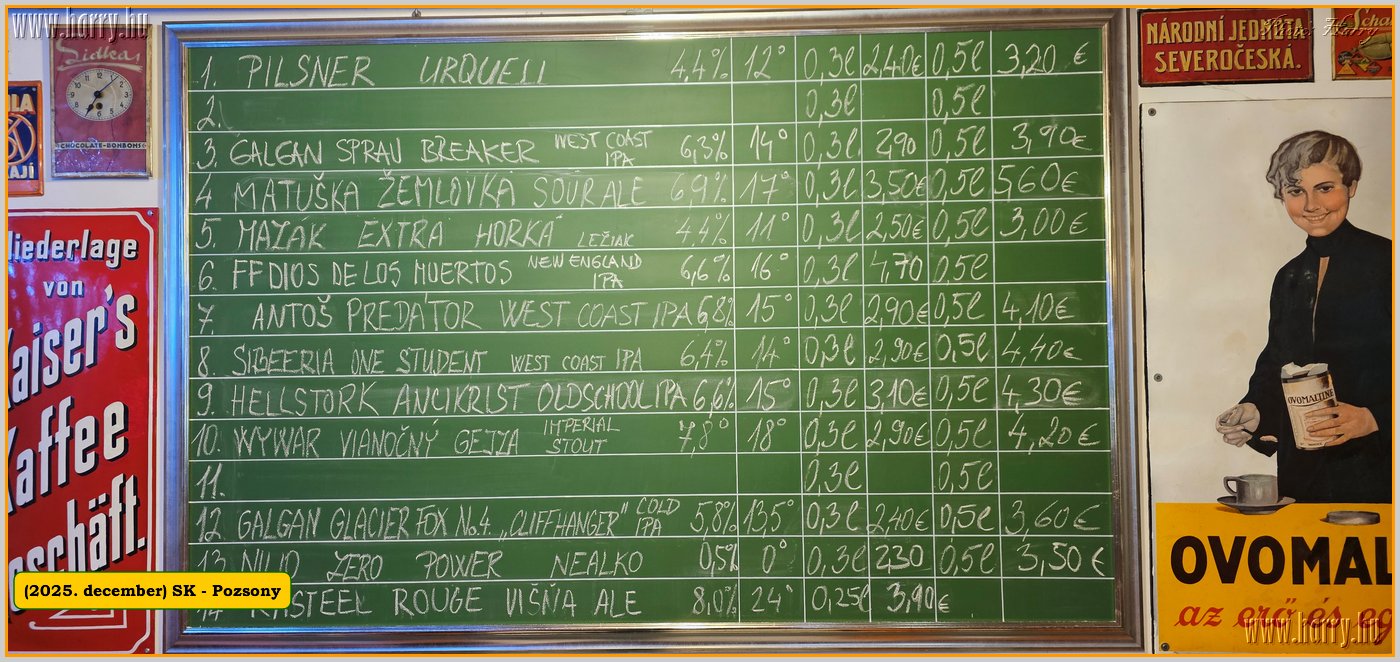 www.harry.hu
Sidkas
CHOCOLATE-BONBONS
NÁRODNÍ JEDNOTA
SEVEROČESKÁ.
1. PILSNER URQUELL 4,4% 12° 0,3l 2,40€ 0,5l 3,20 €
2. 0,3l 0,5l
3. GALGAN SPRAU BREAKER WEST COAST IPA 6,3% 14° 0,3l 2,90 0,5l 3,90€
4 MATUŠKA ŽEMLOVKA SOUR ALE 6,9% 17° 0,3l 3,50€ 0,5l 5,60€
5. MAZÁK EXTRA HORKÁ LEŽIAK 4,4% 11° 0,3l 2,50€ 0,5l 3,00€
6. FF DIOS DE LOS MUERTOS NEW ENGLAND IPA 6,6% 16° 0,3l 4,70 0,5l
7. ANTOŠ PREDÁTOR WEST COAST IPA 6,8% 15° 0,3l 2,90€ 0,5l 4,10€
8. SIBEERIA ONE STUDENT WEST COAST IPA 6,4% 14° 0,3l 2,90€ 0,5l 4,40€
9. HELLSTORK ANCIKRIST OLDSCHOOL IPA 6,6% 15° 0,3l 3,10€ 0,5l 4,30€
10. WYWAR VIANOČNÝ GEJZA IMPERIAL STOUT 7,8° 18° 0,3l 2,90€ 0,5l 4,20€
11. 0,3l 0,5l
12 GALGAN GLACIER FOX No.4 „CLIFFHANGER" COLD IPA 5,8% 13,5° 0,3l 2,40€ 0,5l 3,60€
13 ZERO POWER NEALKO 0,5% 0° 0,3l 2,30 0,5l 3,50€
14 KASTEEL ROUGE VIŠŇA ALE 8,0% 24° 0,25l 3,90€
liederlage
von
Kaiser's
Kaffee
eschäft.
OVOMALTINE
OVOMAL
az erő és eg
(2025. december) SK - Pozsony
www.harry.hu